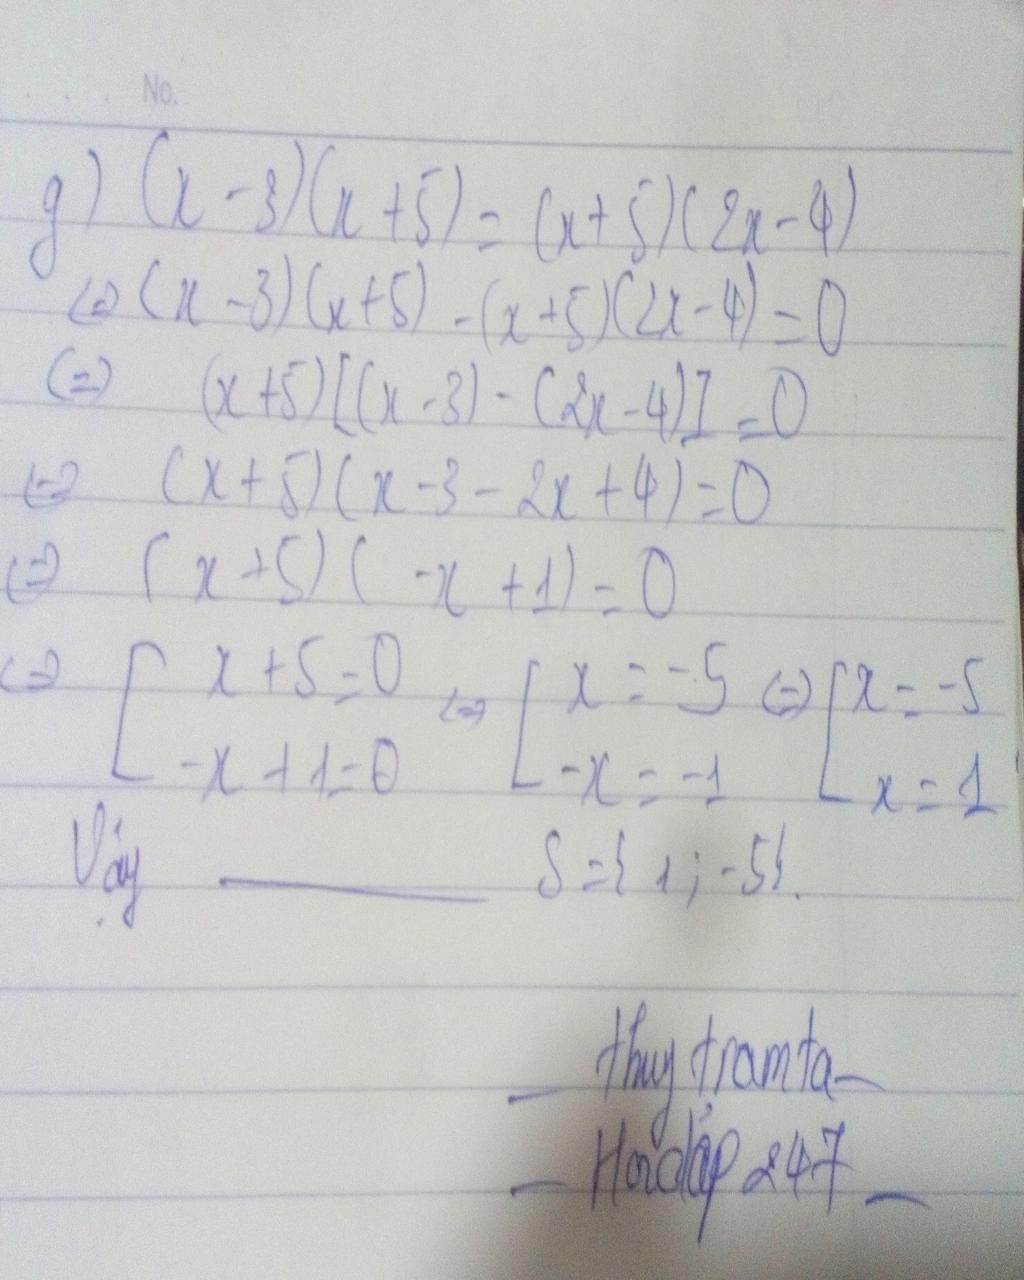 No.
g) (x-3)(x+5) = (x+5)(2x-4)
<=> (x-3)(x+5) - (x+5)(2x-4) = 0
(=) (x+5)[(x-3) - (2x-4)] = 0
<=> (x+5)(x-3-2x+4) = 0
(=) (x+5)(-x+1) = 0
<=> [ x+5=0 <=> [ x = -5 (=) [ x = -5
-x+1=0 -x = -1 x = 1
Vậy ——— S = { 1 ; -5}.
— thuy tramta —
— Hoidáp 247 —